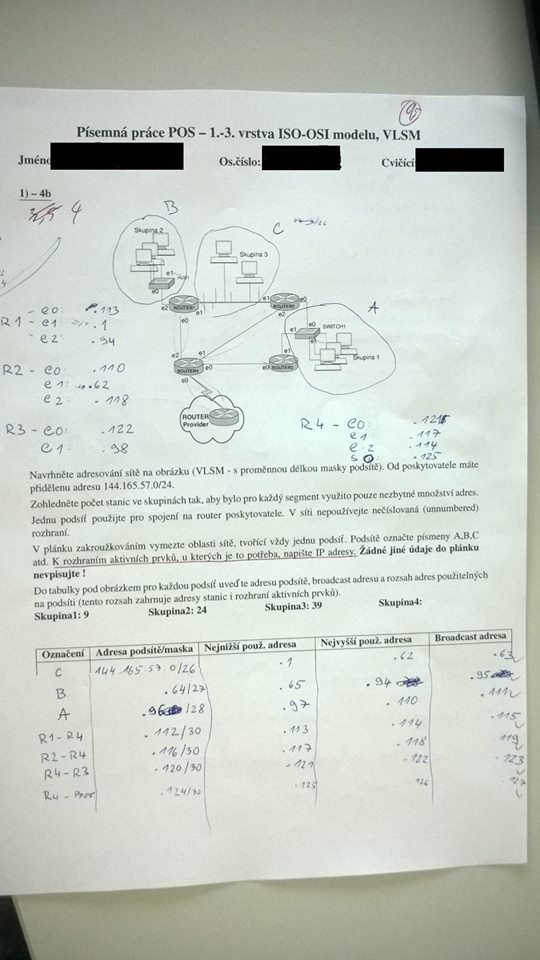 Písemná práce POS – 1.-3. vrstva ISO-OSI modelu, VLSM
Jméno
Os.číslo:
Cvičící:
1) – 4b
4
B
C
A
Skupina 2
Skupina 3
HUB1
e1
e0
e2
ROUTER1
e1
e0
e0
ROUTER2
e1
e2
e0
SWITCH1
e1
Skupina 1
e2
e1
e1
ROUTER3
e0
ROUTER4
e0
s0
ROUTER
Provider
- e0: .113
R1 - e1: .1
- e2: .94
R2 - e0: .110
e1: .62
e2: .118
R3 - e0: .122
e1: .98
R4 - e0: .121
e1: .117
e2: .114
s0: .125
Navrhněte adresování sítě na obrázku (VLSM - s proměnnou délkou masky podsítě). Od poskytovatele máte
přidělenu adresu 144.165.57.0/24.
Zohledněte počet stanic ve skupinách tak, aby bylo pro každý segment využito pouze nezbytné množství adres.
Jednu podsíť použijte pro spojení na router poskytovatele. V síti nepoužívejte nečíslovaná (unnumbered)
rozhraní.
V plánku zakroužkováním vymezte oblasti sítě, tvořící vždy jednu podsíť. Podsítě označte písmeny A,B,C
atd. K rozhraním aktivních prvků, u kterých je to potřeba, napište IP adresy. Žádné jiné údaje do plánku
nevpisujte !
Do tabulky pod obrázkem pro každou podsíť uveďte adresu podsítě, broadcast adresu a rozsah adres použitelných
na podsíti (tento rozsah zahrnuje adresy stanic i rozhraní aktivních prvků).
Skupina1: 9 Skupina2: 24 Skupina3: 39 Skupina4:
Označení Adresa podsítě/maska Nejnižší použ. adresa Nejvyšší použ. adresa Broadcast adresa
C 144.165.57.0/26 .1 .62 .63
B .64/27 .65 .94 .95
A .96/28 .97 .110 .111
R1-R4 .112/30 .113 .114 .115
R2-R4 .116/30 .117 .118 .119
R4-R3 .120/30 .121 .122 .123
R4-Prov .124/30 .125 .126 .127